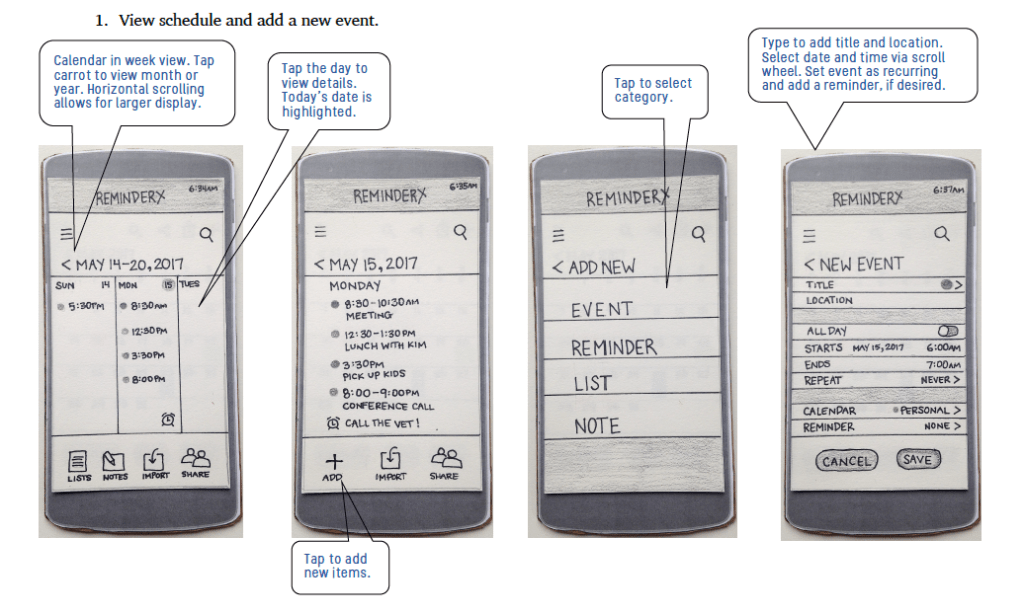 1. View schedule and add a new event.
Calendar in week view. Tap
carrot to view month or
year. Horizontal scrolling
allows for larger display.
Tap the day to
view details.
Today's date is
highlighted.
Tap to select
category.
Type to add title and location.
Select date and time via scroll
wheel. Set event as recurring
and add a reminder, if desired.
6:34AM
REMINDERX
< MAY 14-20, 2017
SUN 14 MON 15 TUES
5:30PM 8:30AM
12:30PM
3:30PM
8:00PM
LISTS NOTES IMPORT SHARE
6:35AM
REMINDERX
< MAY 15, 2017
MONDAY
8:30-10:30AM
MEETING
12:30-1:30PM
LUNCH WITH KIM
3:30PM
PICK UP KIDS
8:00-9:00PM
CONFERENCE CALL
CALL THE VET!
ADD IMPORT SHARE
Tap to add
new items.
REMINDERX
< ADD NEW
EVENT
REMINDER
LIST
NOTE
6:37AM
REMINDERX
< NEW EVENT
TITLE >
LOCATION
ALL DAY
STARTS MAY 15, 2017 6:00AM
ENDS 7:00AM
REPEAT NEVER >
CALENDAR PERSONAL >
REMINDER NONE >
CANCEL SAVE